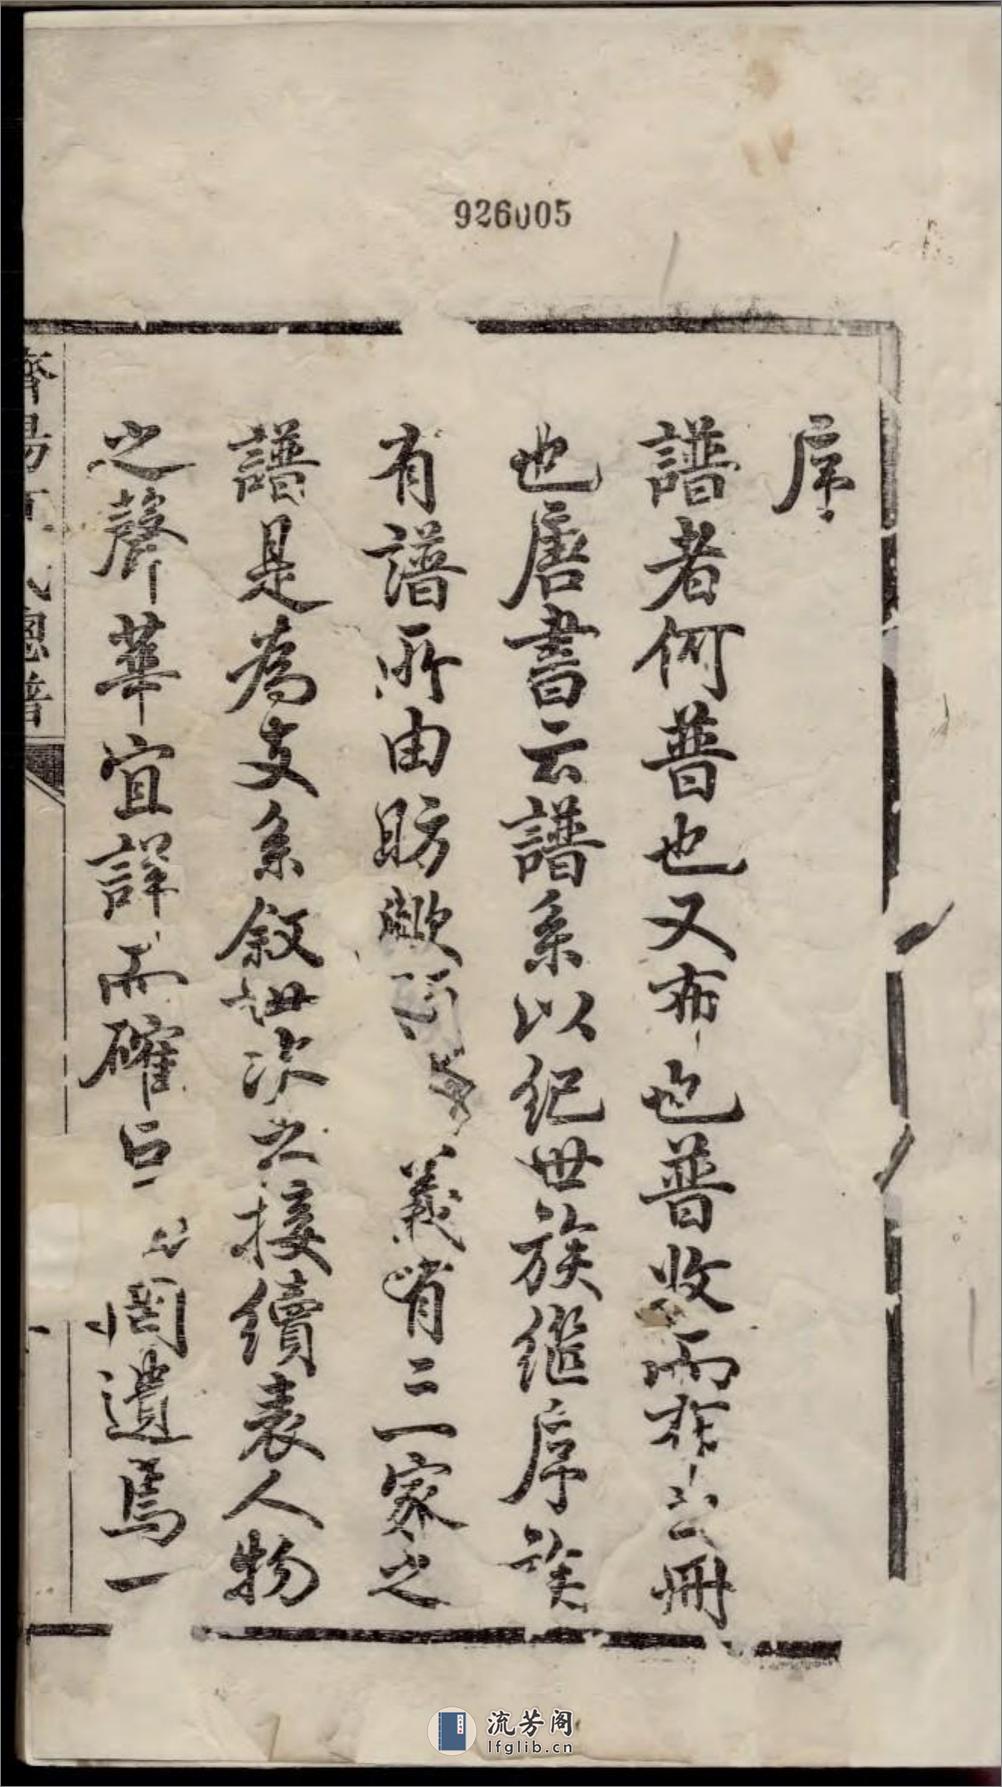 926005
序
譜者何普也又布也普收而布之冊
也唐書云譜系以紀世族繼序族
有譜所由昉歟 義有二一家之
譜是為支系敘世次之接續表人物
之聲華宜詳而確 罔遺焉一
濟陽 氏總譜
流芳阁
lfglib.cn